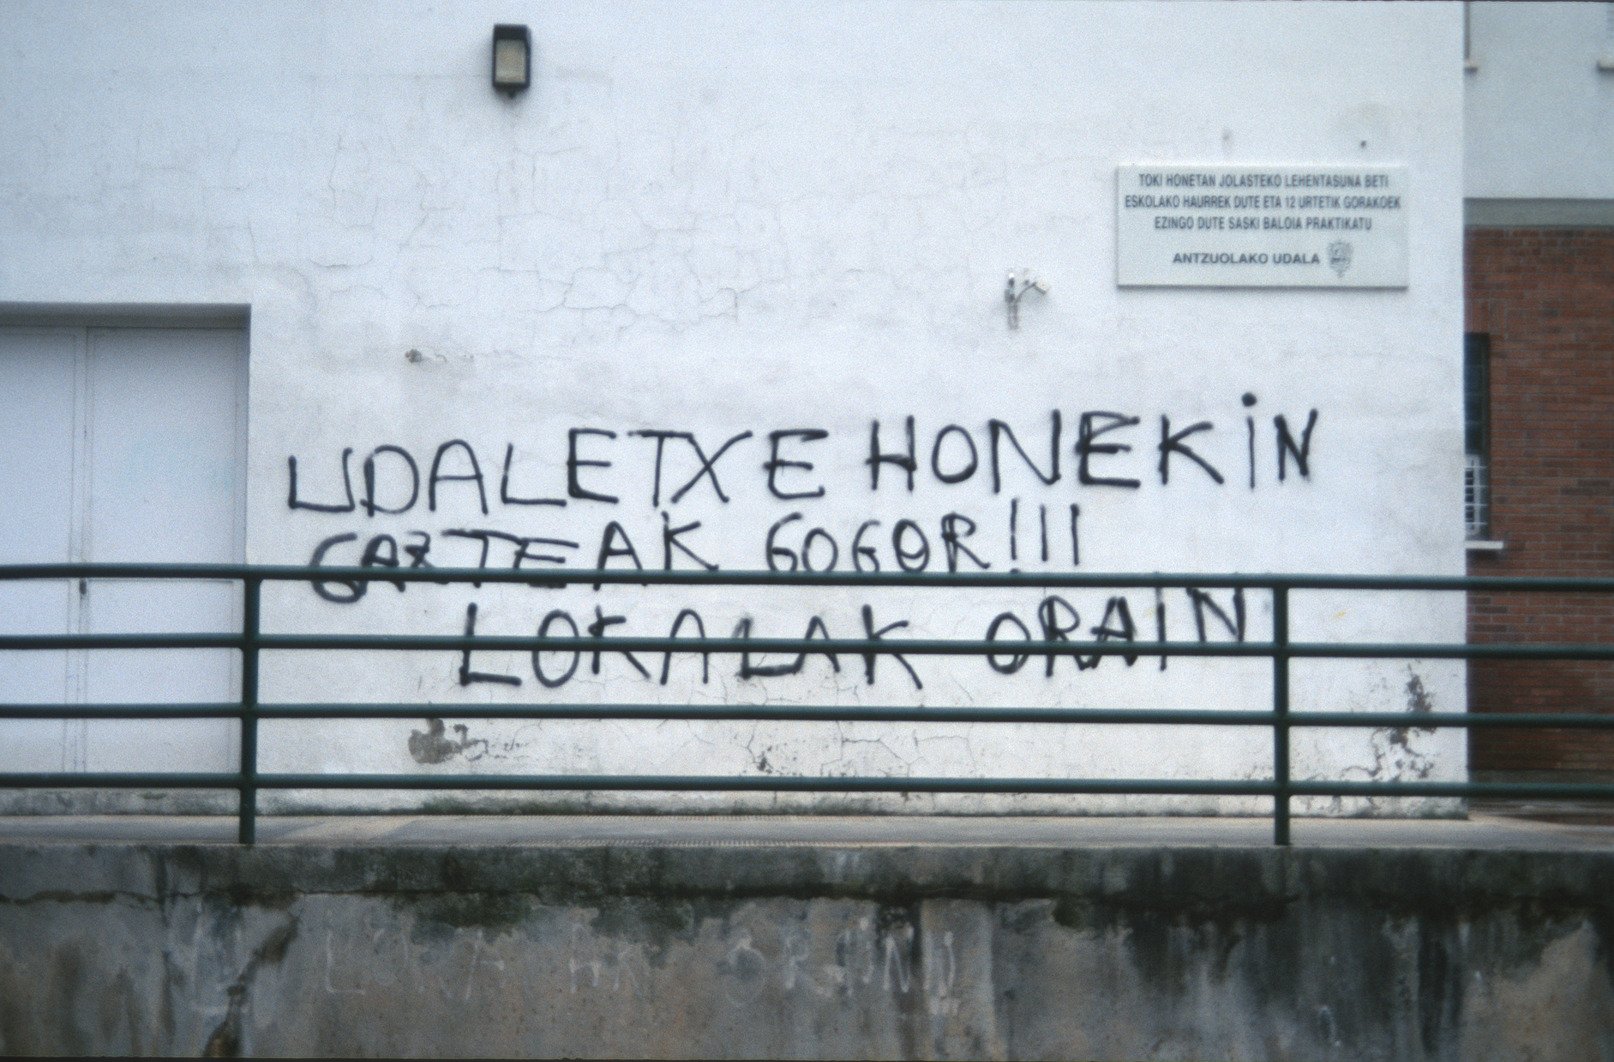 TOKI HONETAN JOLASTEKO LEHENTASUNA BETI
ESKOLAKO HAURREK DUTE ETA 12 URTETIK GORAKOEK
EZINGO DUTE SASKI BALOIA PRAKTIKATU
ANTZUOLAKO UDALA
UDALETXE HONEKiN
GAZTEAK GOGOR!!!
LOKALAK ORAIN